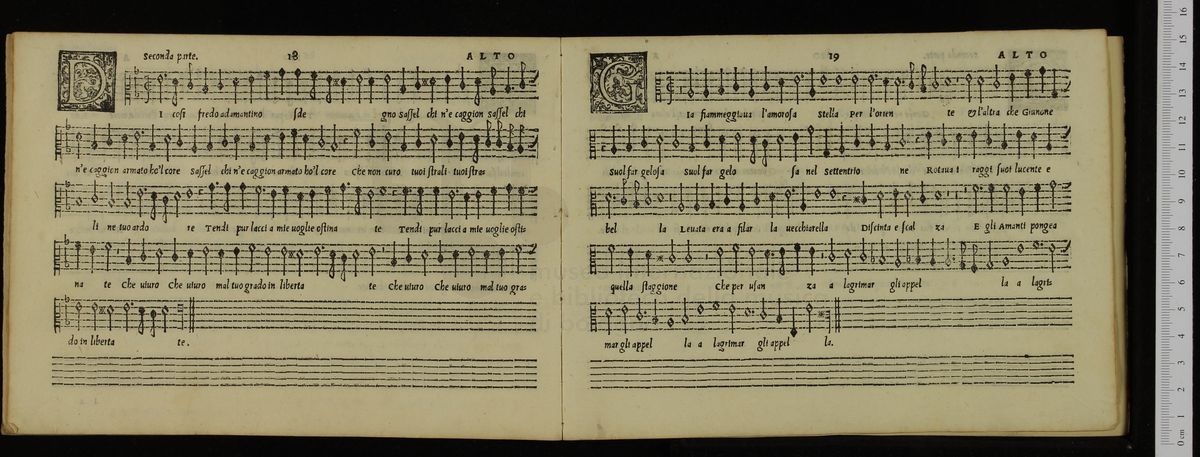 Seconda parte. 18 ALTO
D I cosi fredo adamantino sde gno sassel chi n'e caggion sassel chi
n'e caggion armato ho'l core sassel chi n'e caggion armato ho'l core Che non curo tuoi strali tuoi stra=
li ne tuo ardo re Tendi pur lacci a mie uoglie ostina te Tendi pur lacci a mie uoglie osti=
na te Che uiuro Che uiuro mal tuo grado in liberta te Che uiuro Che uiuro mal tuo gra=
do in liberta te.
19 ALTO
G Ia fiammeggiaua l'amorosa Stella Per l'orien te & l'altra che Giunone
Suol far gelosa Suol far gelo sa nel Settentrio ne Rotaua i raggi suoi lucente e
bel la Leuata era a filar la uecchiarella Discinta e scal za E gli Amanti pongea
quella staggione Che per usan za a lagrimar gli appel la a lagri=
mar gli appel la a lagrimar gli appel la.